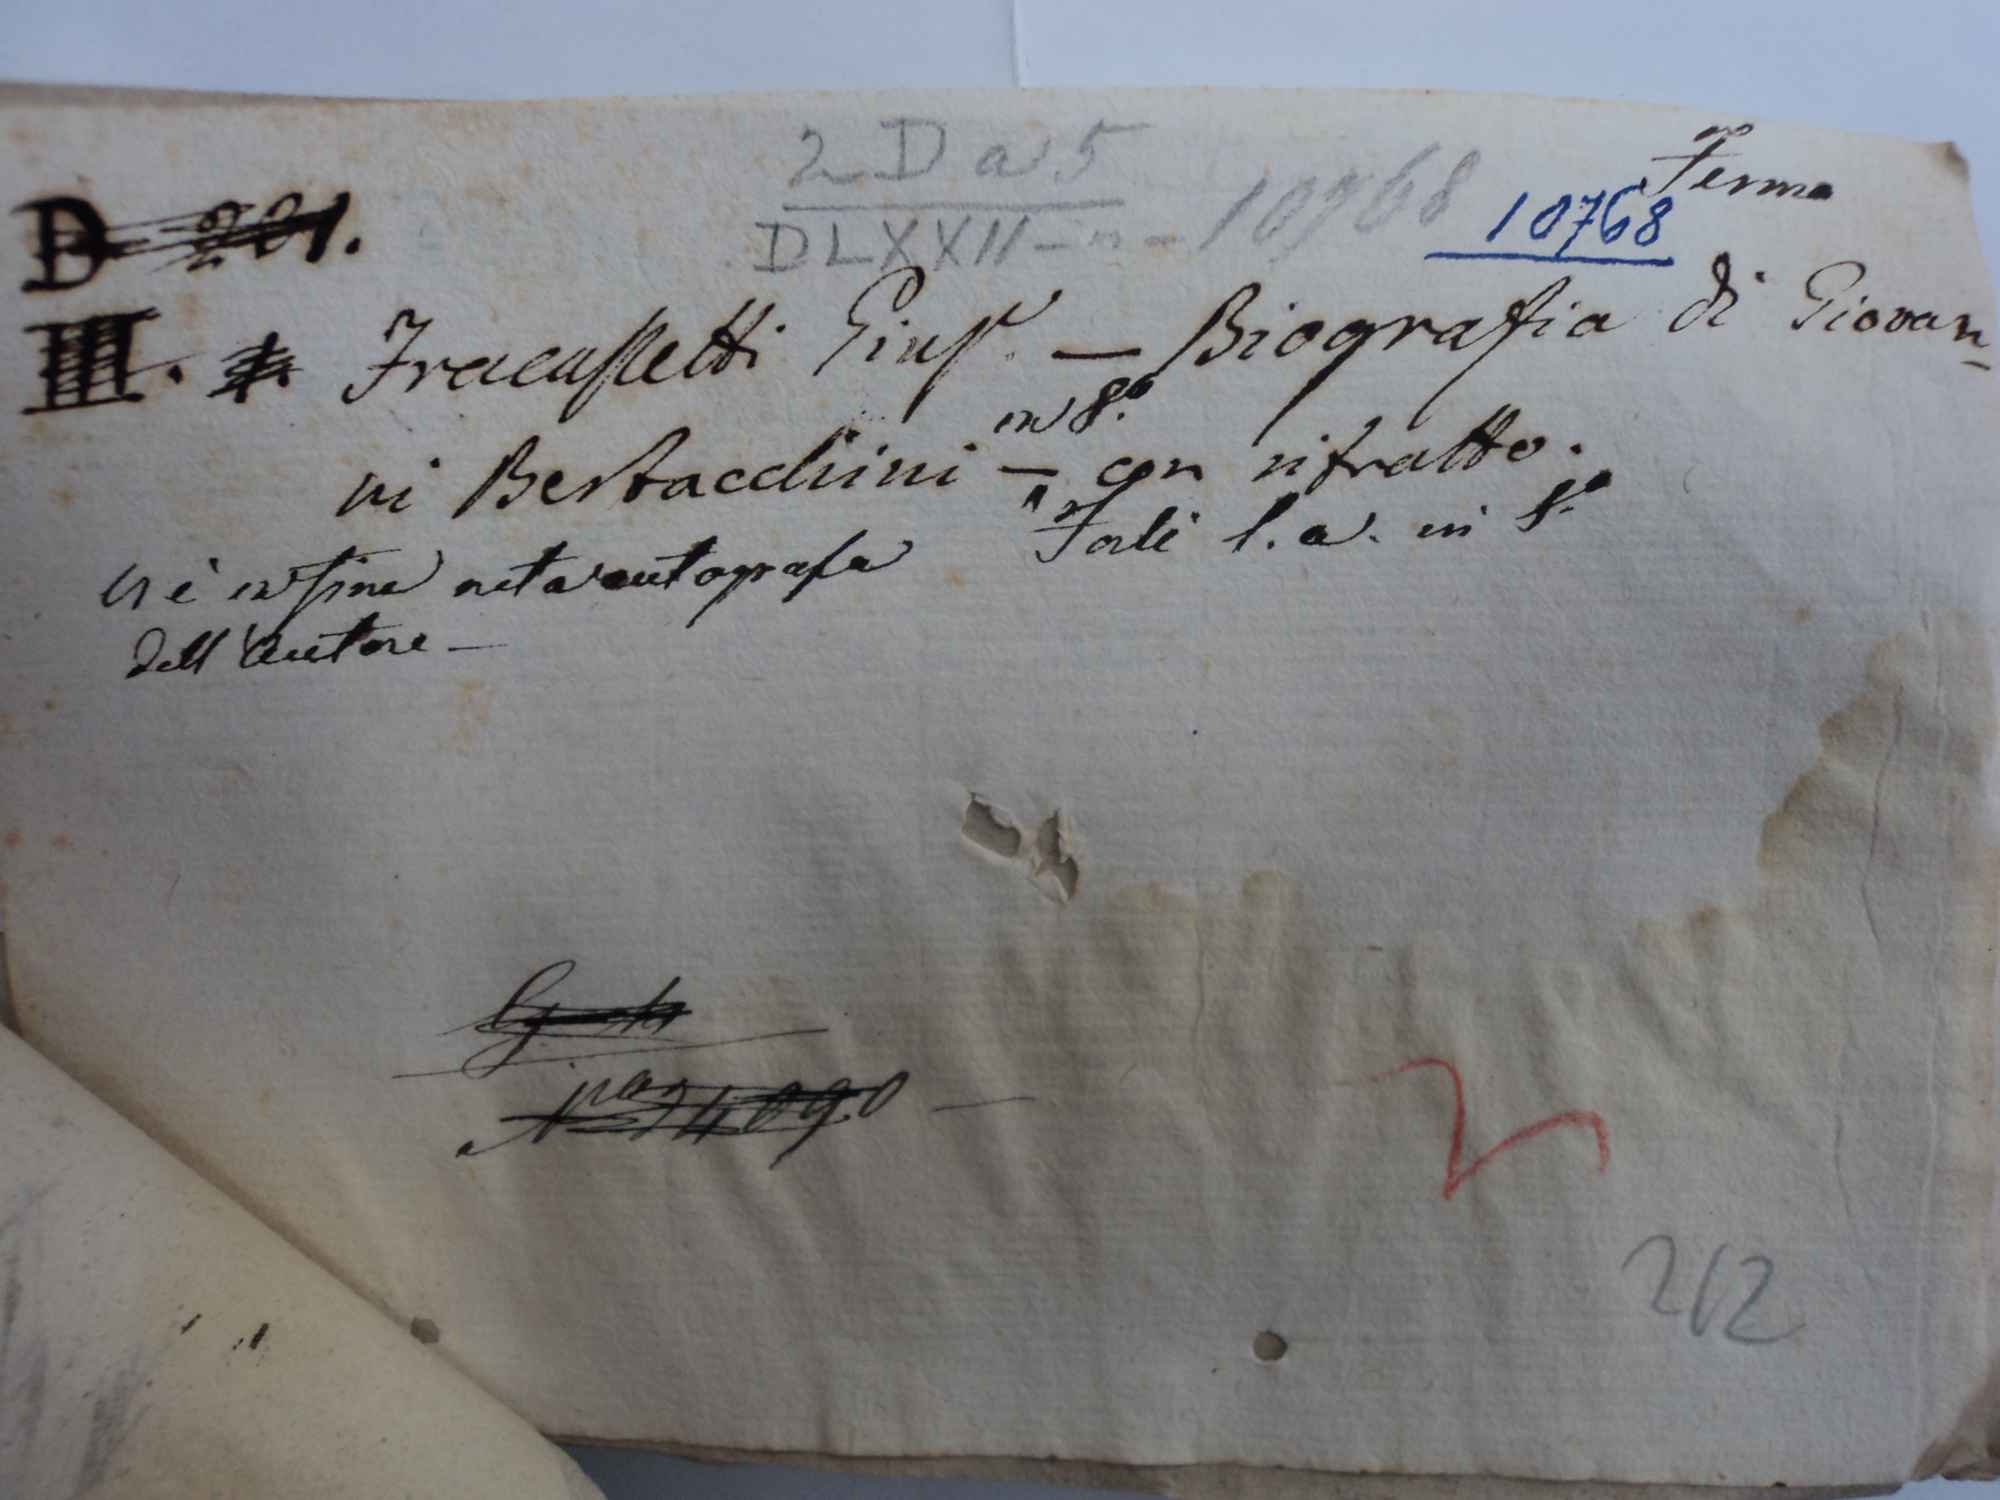 2 D a 5
DLXXII - n - 10768
Fermo
10768
D 201.
III. Fracassetti Gius. — Biografia di Giovan-
in 8.º
ni Bertacchini — con ritratto.
Forlì s. a. in 8º
Vi è in fine nota autografa
dell'Autore —
Nº 14090 —
2
212